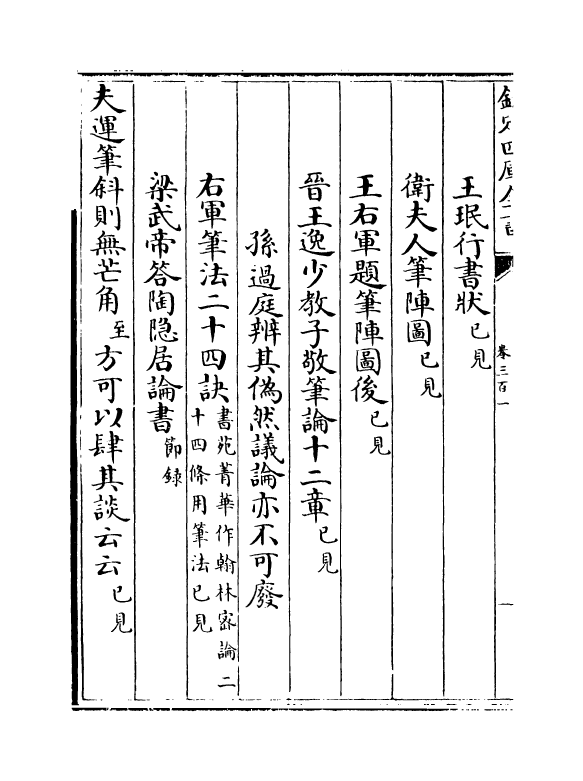 欽定四庫全書
卷三百一
一
王珉行書狀已見
衛夫人筆陣圖已見
王右軍題筆陣圖後已見
晉王逸少教子敬筆論十二章已見
孫過庭辨其偽然議論亦不可廢
右軍筆法二十四訣書苑菁華作翰林密論二
十四條用筆法已見
梁武帝答陶隐居論書節録
夫運筆斜則無芒角至方可以肆其談云云已見